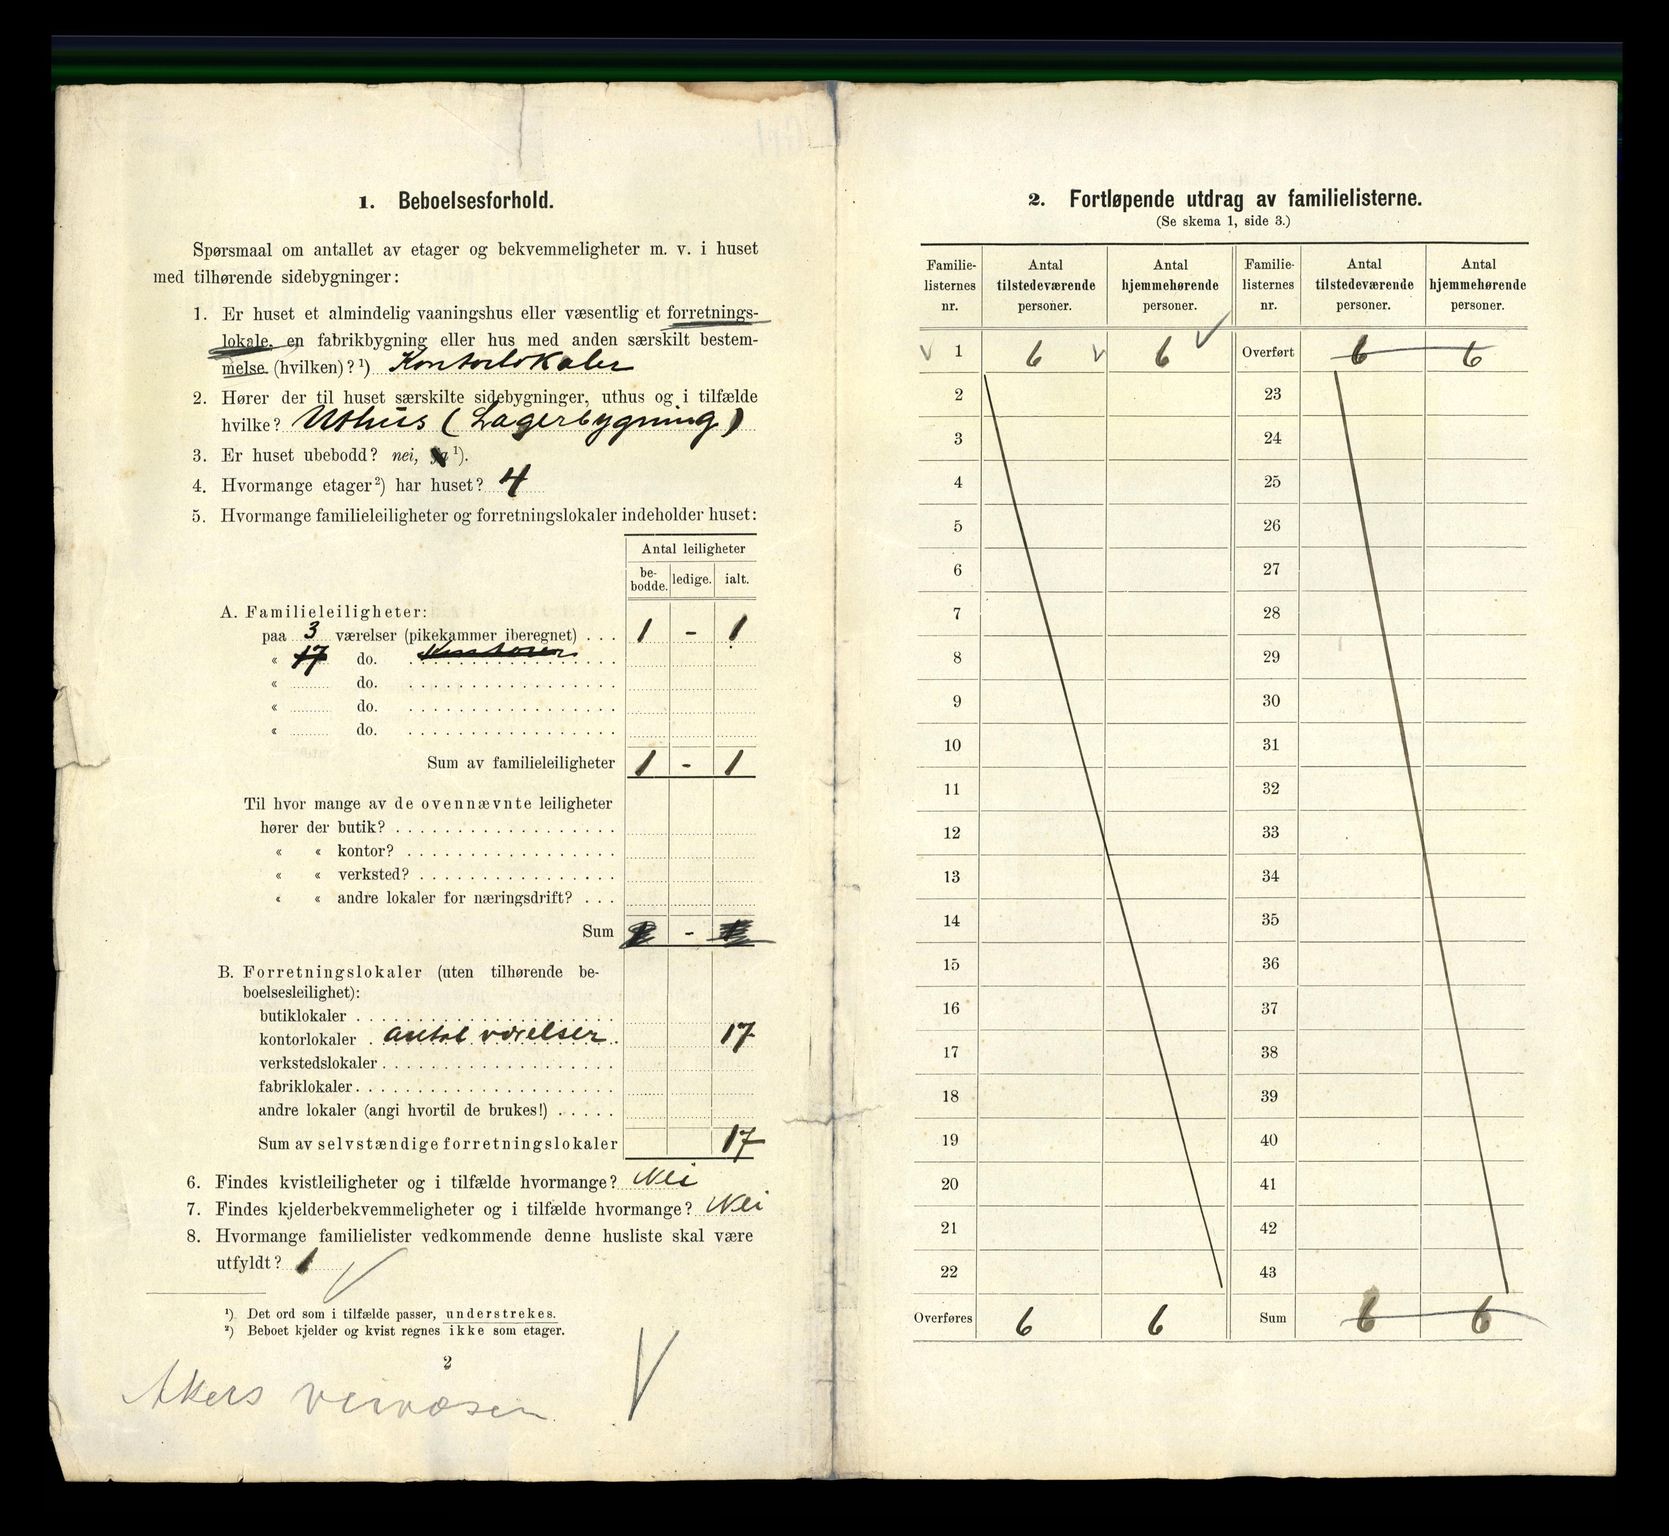 1. Beboelsesforhold.
Spørsmaal om antallet av etager og bekvemmeligheter m. v. i huset
med tilhørende sidebygninger:
1. Er huset et almindelig vaaningshus eller væsentlig et forretnings-
lokale, en fabrikbygning eller hus med anden særskilt bestem-
melse (hvilken)? ¹) Kontorlokaler
2. Hører der til huset særskilte sidebygninger, uthus og i tilfælde
hvilke? Uthus (Lagerbygning)
3. Er huset ubebodd? nei, ja ¹).
4. Hvormange etager ²) har huset? 4
5. Hvormange familieleiligheter og forretningslokaler indeholder huset:
Antal leiligheter
be-bodde. ledige. ialt.
A. Familieleiligheter:
paa 3 værelser (pikekammer iberegnet) . . . 1 - 1
« 17 do. Kontorer
« do.
« do.
« do.
Sum av familieleiligheter 1 - 1
Til hvor mange av de ovennævnte leiligheter
hører der butik?
« « kontor?
« « verksted?
« « andre lokaler for næringsdrift?
Sum -
B. Forretningslokaler (uten tilhørende be-
boelsesleilighet):
butiklokaler
kontorlokaler antal værelser 17
verkstedslokaler
fabriklokaler
andre lokaler (angi hvortil de brukes!)
Sum av selvstændige forretningslokaler 17
6. Findes kvistleiligheter og i tilfælde hvormange? Nei
7. Findes kjelderbekvemmeligheter og i tilfælde hvormange? Nei
8. Hvormange familielister vedkommende denne husliste skal være
utfyldt? 1
¹) Det ord som i tilfælde passer, understrekes.
²) Beboet kjelder og kvist regnes ikke som etager.
2
Akers veivæsen
2. Fortløpende utdrag av familielisterne.
(Se skema 1, side 3.)
Familie- Antal Antal Familie- Antal Antal
listernes tilstedeværende hjemmehørende listernes tilstedeværende hjemmehørende
nr. personer. personer. nr. personer. personer.
1 6 6 Overført 6 6
2 23
3 24
4 25
5 26
6 27
7 28
8 29
9 30
10 31
11 32
12 33
13 34
14 35
15 36
16 37
17 38
18 39
19 40
20 41
21 42
22 43
Overføres 6 6 Sum 6 6